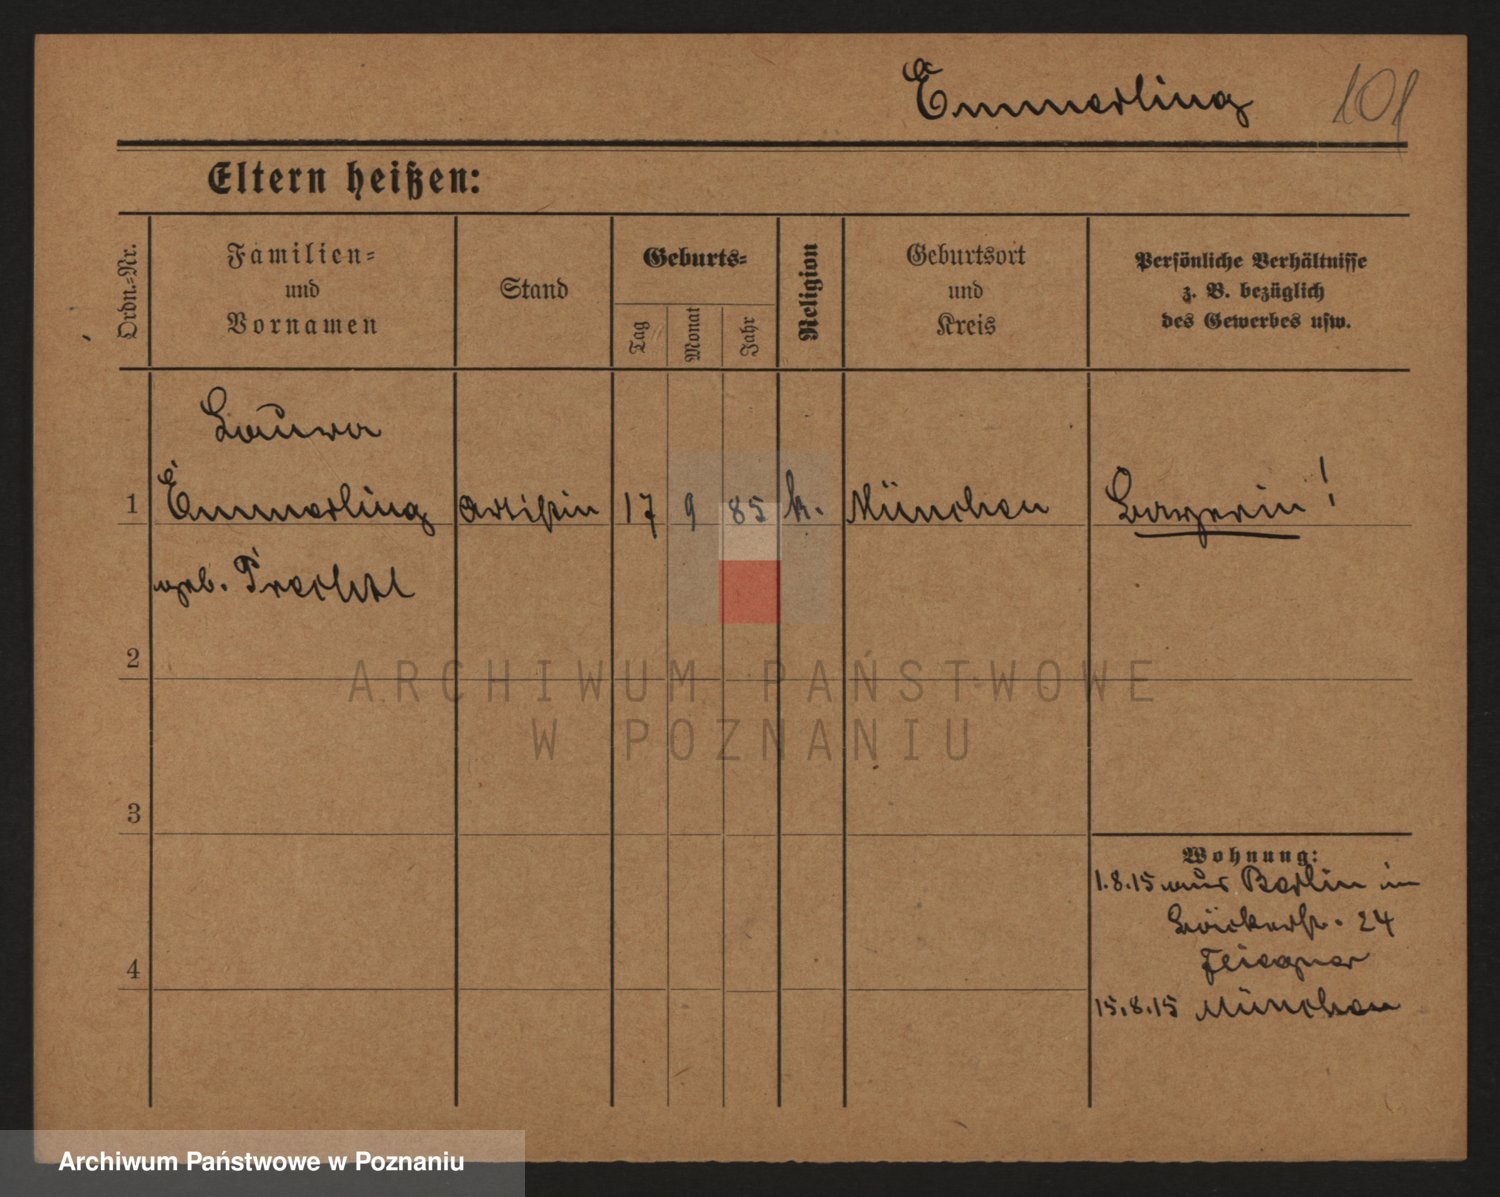 Emmerling 101
Eltern heißen:
Ordn.-Nr.
Familien-
und
Vornamen
Stand
Geburts-
Tag
Monat
Jahr
Religion
Geburtsort
und
Kreis
Persönliche Verhältnisse
z. B. bezüglich
des Gewerbes usw.
Laura
1 Emmerling Artistin 17 9 85 k. München Bayerin!
geb. Prechtl
2
3
4
Wohnung:
1.8.15 aus Berlin in
Bäckerstr. 24
15.8.15 München
ARCHIWUM PAŃSTWOWE
W POZNANIU
Archiwum Państwowe w Poznaniu